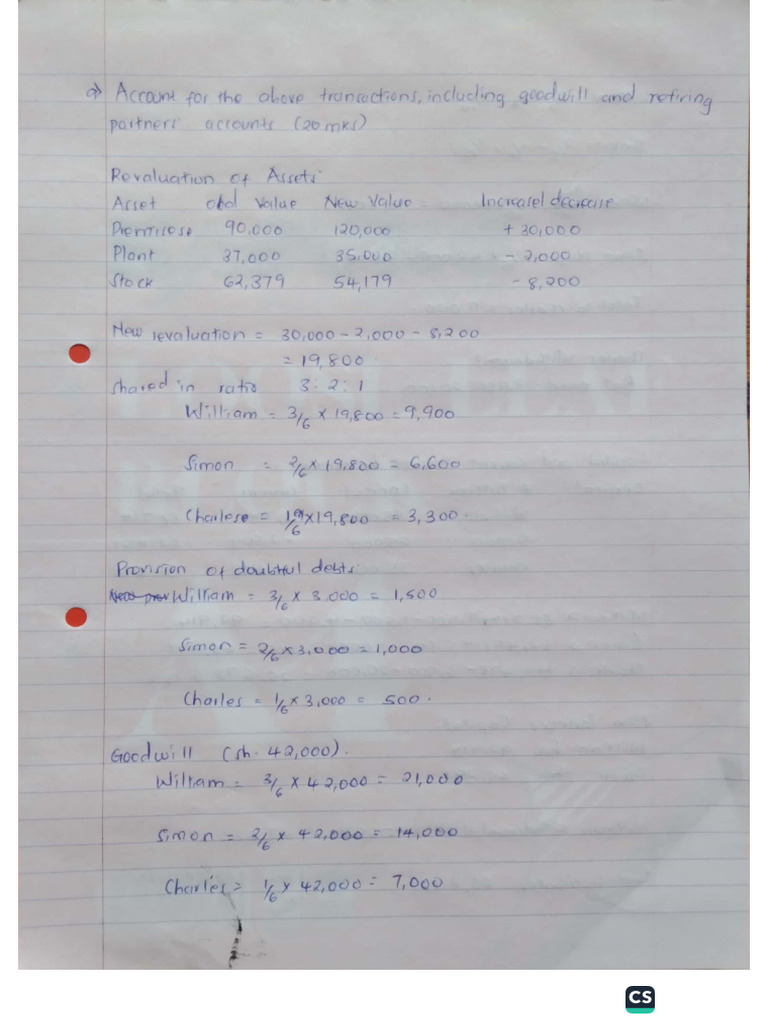 a) Account for the above transactions, including goodwill and retiring
partners' accounts (20 mks)
Revaluation of Assets:
Asset old Value New Value Increase/decrease
90,000 120,000 + 30,000
Plant 37,000 35,000 - 2,000
Stock 62,379 54,179 - 8,200
New revaluation = 30,000 - 2,000 - 8,200
= 19,800.
shared in ratio 3:2:1
William = 3/6 x 19,800 = 9,900
Simon = 2/6 x 19,800 = 6,600
Charlese = 1/6 x 19,800 = 3,300.
Provision of doubtful debts:
William = 3/6 x 3,000 = 1,500
Simon = 2/6 x 3,000 = 1,000
Charles = 1/6 x 3,000 = 500.
Goodwill (sh. 42,000).
William = 3/6 x 42,000 = 21,000
Simon = 2/6 x 42,000 = 14,000
Charles = 1/6 x 42,000 = 7,000
CS